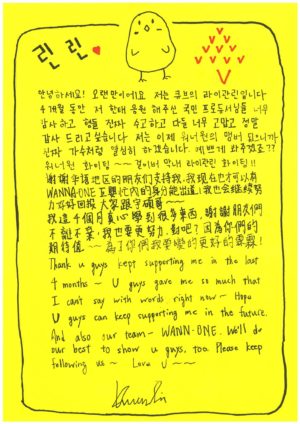 린린
안녕하세요! 오랜만이에요 저는 큐브의 라이관린입니다
4개월 동안 저 한테 응원 해주신 국민 프로듀서님들 너무
감사하고 형들 진짜 수고하고 다들 너무 고맙고 정말
감사 드리고 싶습니다 저는 이제 워너원의 멤버 으니까
진짜 가수처럼 열심히 하겠습니다. 예쁘게 봐주겠죠??
워너원 화이팅 ~~ 막내 라이관린 화이팅!!
謝謝 地區的朋友们支持我, 我现在也才可以有
WANNA·ONE 忙內的身份能出道! 我也會继续努
力 好好回报 大家跟
我这4個月真心學到很多東西, 謝謝朋友們
不離不棄, 我也要更努力, 對吧? 因為你们的
期待值 ~~ 為了你們我要變的更好的
Thank u guys kept supporting me in the last
4 months ~ U guys gave me so much that
I can't say with words right now ~ Hope
U guys can keep supporting me in the future.
And also our team ~ WANN·ONE. We'll do
our best to show u guys, too. Please keep
following us ~ Love U ~~